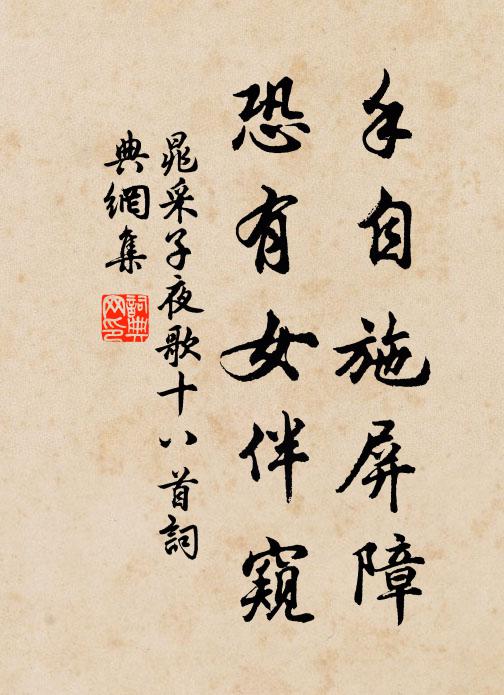 手自施屏障
恐有女伴窺
晁采子夜歌十八首詞
典網集
詞典
网印